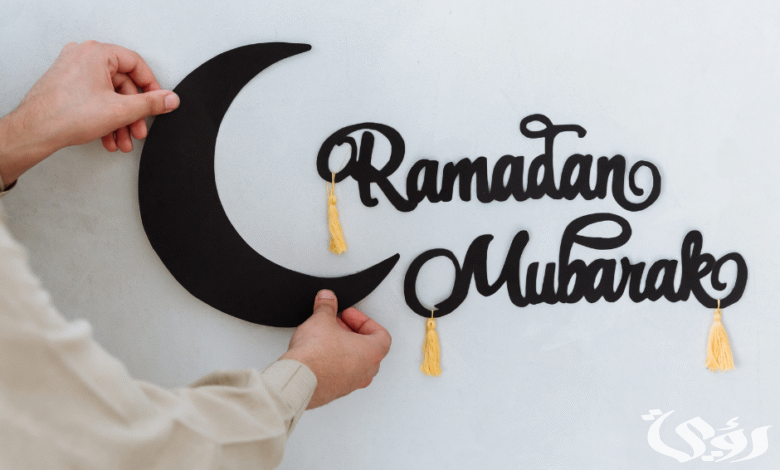 Ramadan
Mubarak
رؤية